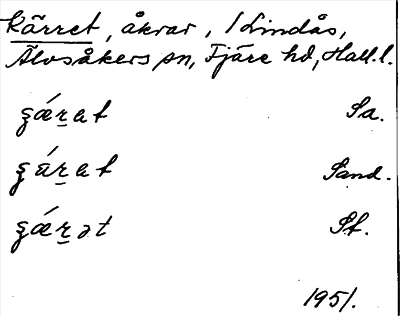 Kärret, åkrar, i Lindås,
Älvsåkers sn, Fjäre hd, Hall. l.
ʂǽr̠at Sa.
ʂár̠at Sand.
ʂǽr̠ət St.
1951.